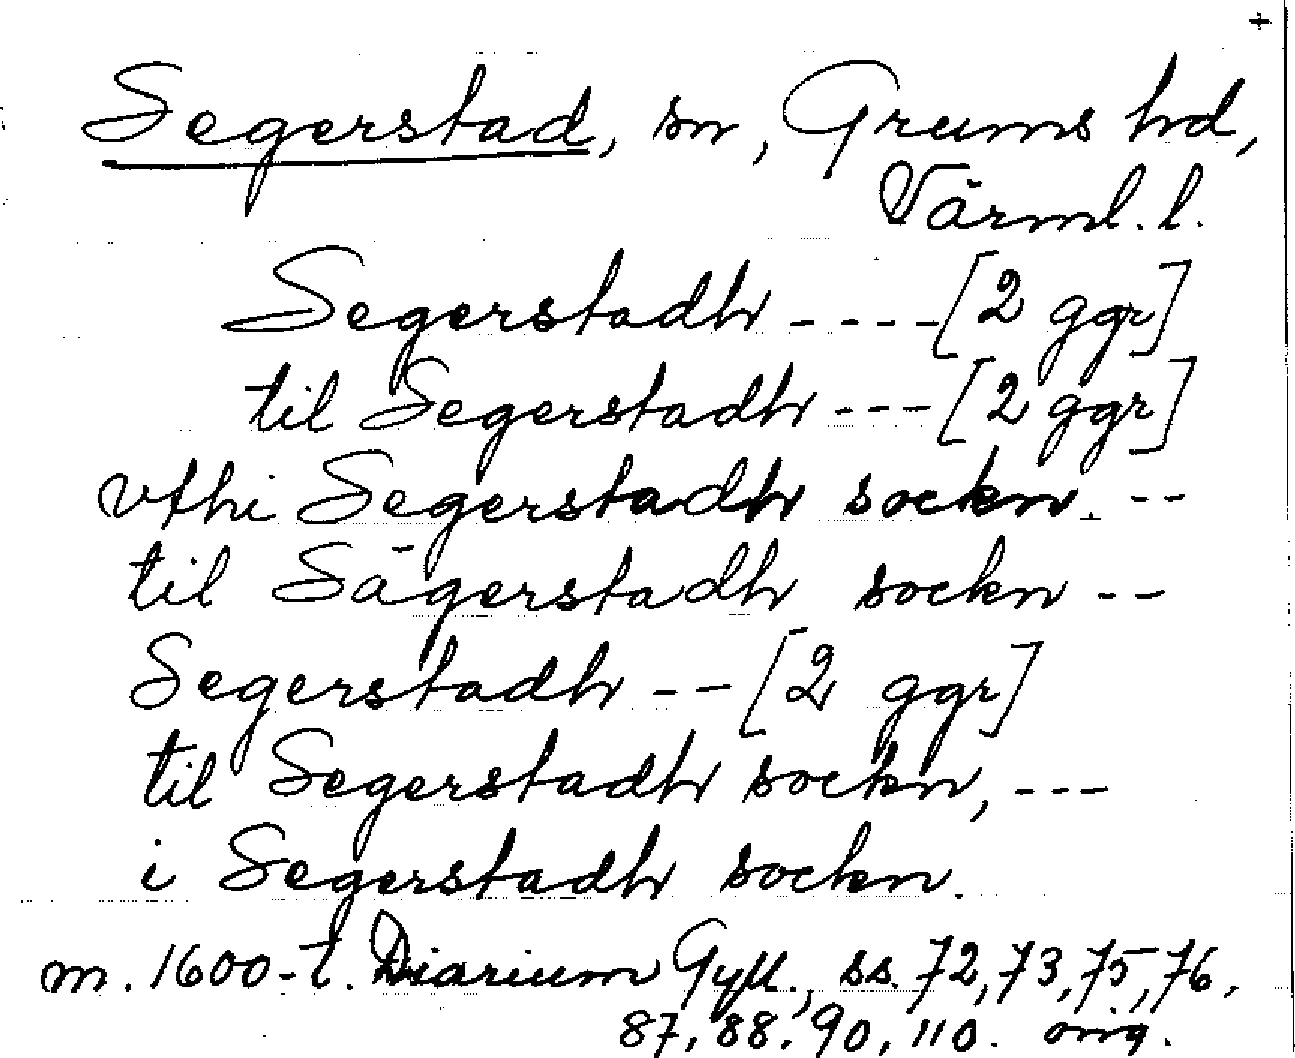 +
Segerstad, sn, Grums hd,
Värml. l.
Segerstadh ----[2 ggr]
til Segerstadh ---[2 ggr]
vthi Segerstadh sockn. --
til Sägerstadh sockn --
Segerstadh --[2 ggr]
til Segerstadh sockn, ---
i Segerstadh sockn.
m. 1600-t. Diarium Gyll., ss. 72, 73, 75, 76,
87, 88, 90, 110. orig.